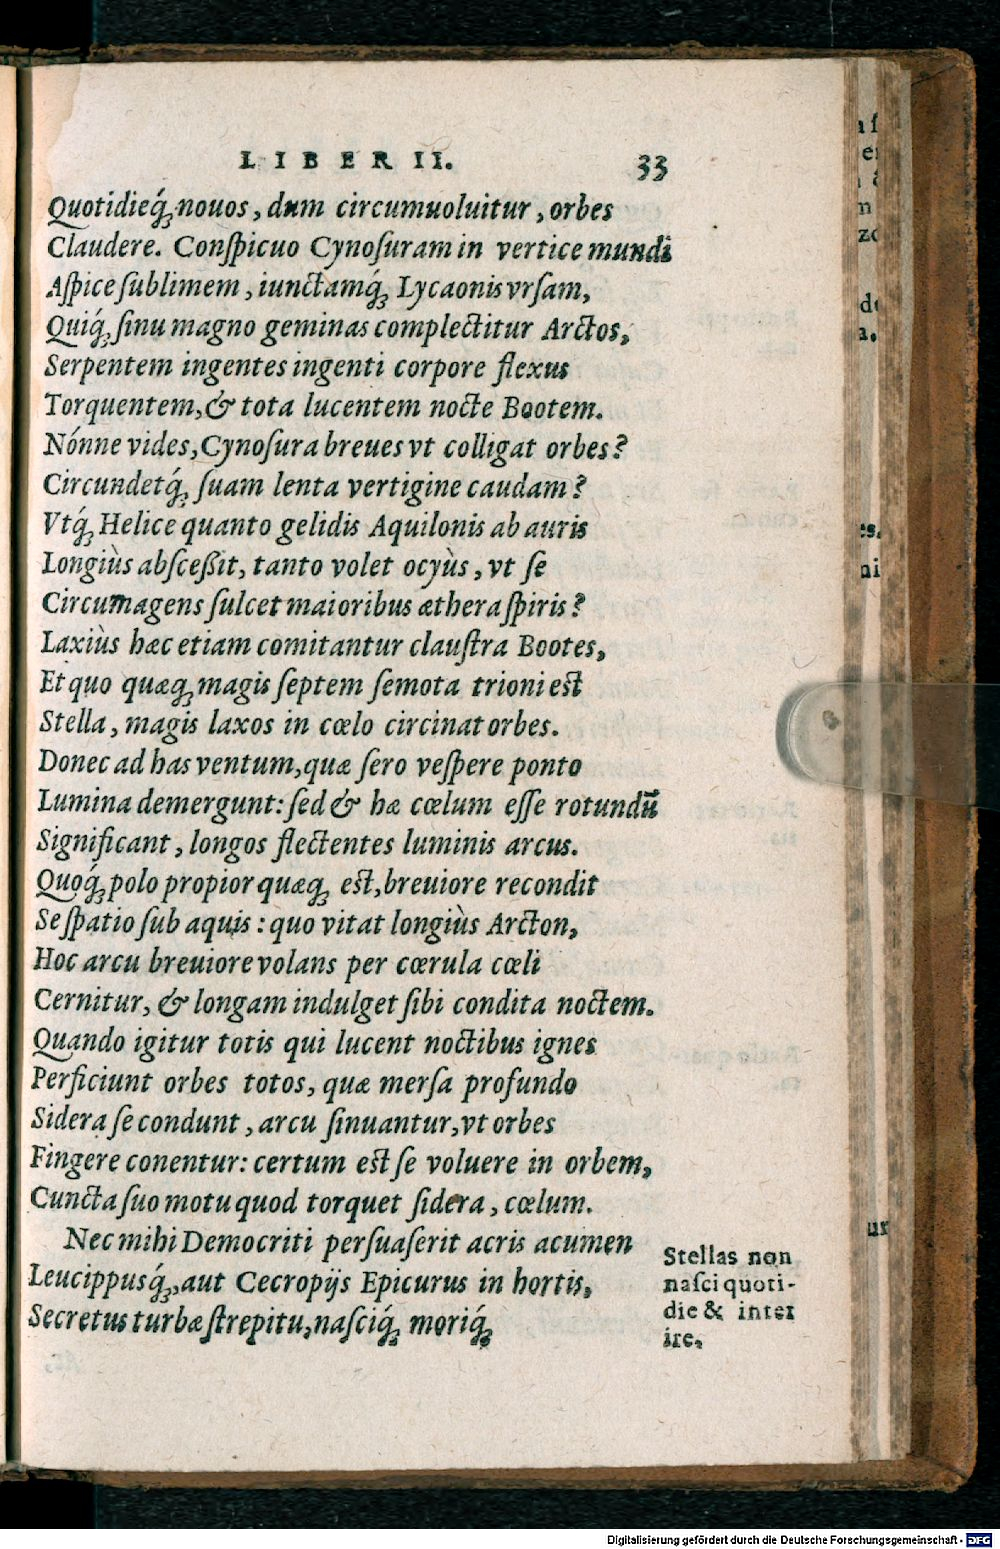 LIBER II. 33
Quotidieq́; nouos, dum circumuoluitur, orbes
Claudere. Conſpicuo Cynoſuram in vertice mundi
Aſpice ſublimem, iunctamq́; Lycaonis vrſam,
Quiq́; ſinu magno geminas complectitur Arctos,
Serpentem ingentes ingenti corpore flexus
Torquentem, & tota lucentem nocte Bootem.
Nónne vides, Cynoſura breues vt colligat orbes?
Circundetq́; ſuam lenta vertigine caudam?
Vtq́; Helice quanto gelidis Aquilonis ab auris
Longiùs abſceßit, tanto volet ocyùs, vt ſe
Circumagens ſulcet maioribus æthera ſpiris?
Laxiùs hæc etiam comitantur clauſtra Bootes,
Et quo quæq; magis ſeptem ſemota trioni eſt
Stella, magis laxos in cœlo circinat orbes.
Donec ad has ventum, quæ ſero veſpere ponto
Lumina demergunt: ſed & hæ cœlum eſſe rotundū
Significant, longos flectentes luminis arcus.
Quoq́; polo propior quæq; eſt, breuiore recondit
Se ſpatio ſub aquis: quo vitat longiùs Arcton,
Hoc arcu breuiore volans per cœrula cœli
Cernitur, & longam indulget ſibi condita noctem.
Quando igitur totis qui lucent noctibus ignes
Perficiunt orbes totos, quæ merſa profundo
Sidera ſe condunt, arcu ſinuantur, vt orbes
Fingere conentur: certum eſt ſe voluere in orbem,
Cuncta ſuo motu quod torquet ſidera, cœlum.
Nec mihi Democriti perſuaſerit acris acumen
Leucippusq́;, aut Cecropijs Epicurus in hortis,
Secretus turbæ ſtrepitu, naſciq́; moriq́;
Stellas non
naſci quoti-
die & inter
ire.
Digitalisierung gefördert durch die Deutsche Forschungsgemeinschaft - DFG